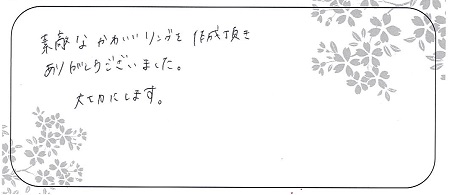 素敵なかわいいリングを作成頂き
ありがとうございました。
大切にします。